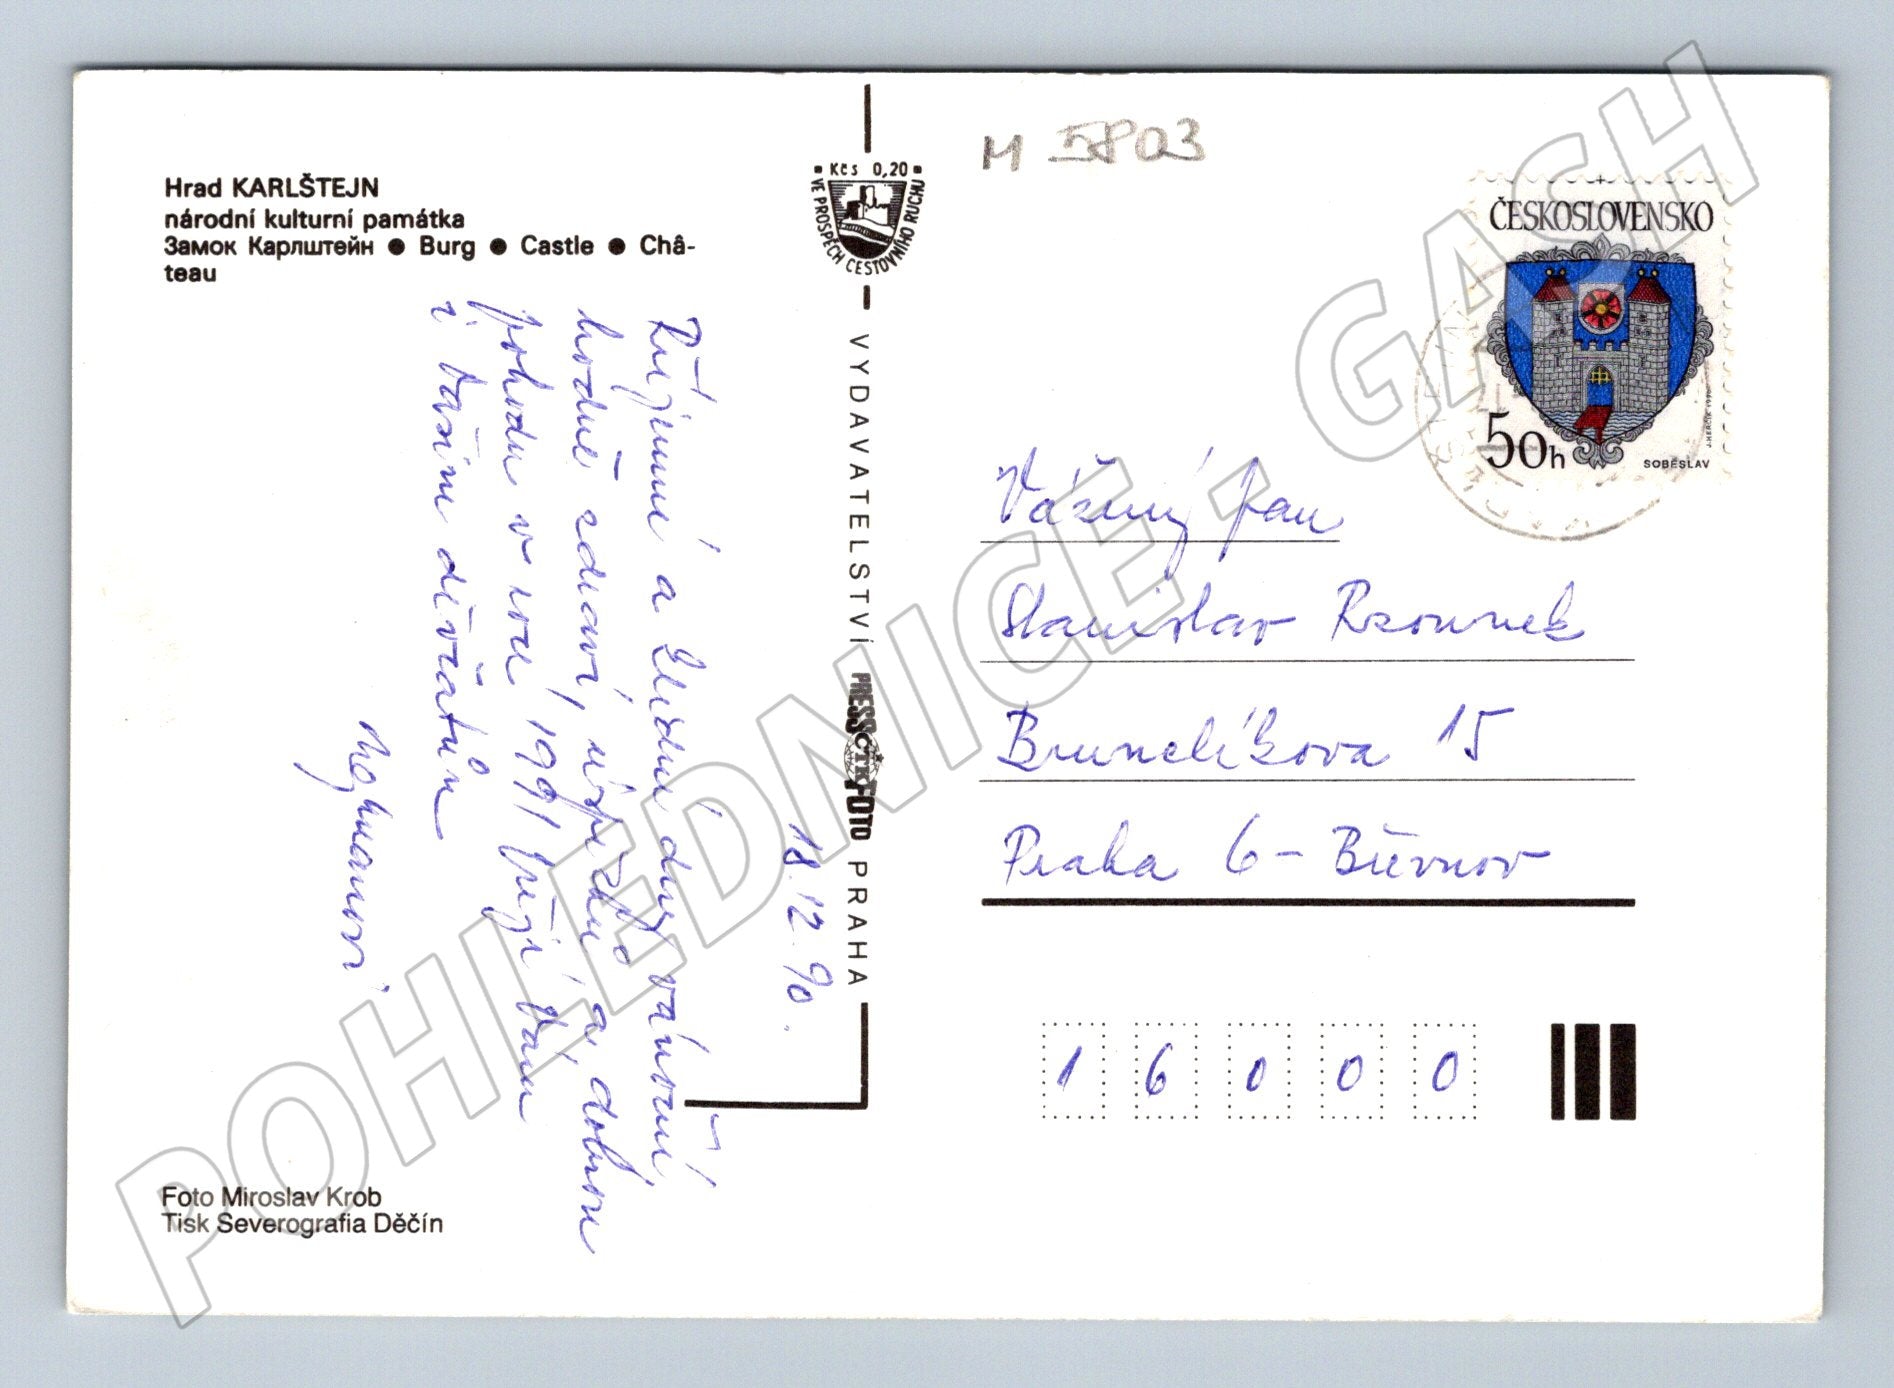 Hrad KARLŠTEJN
národní kulturní památka
Замок Карлштейн ● Burg ● Castle ● Châ-
teau
Kčs 0,20
VE PROSPĚCH CESTOVNÍHO RUCHU
VYDAVATELSTVÍ PRESSFOTO PRAHA
ČTK
M 5803
ČESKOSLOVENSKO
50h
SOBĚSLAV
J. HERČÍK 1990
18.12.90.
a klidné vánoční
hodně zdraví, úspěchů a dobrou
pohodu v roce 1991 přejí Vám
i Vašim děvčatům
Vážený pan
Stanislav Rzounek
Brunclíkova 15
Praha 6 - Břevnov
16000
Foto Miroslav Krob
Tisk Severografia Děčín
POHLEDNICE - GASH